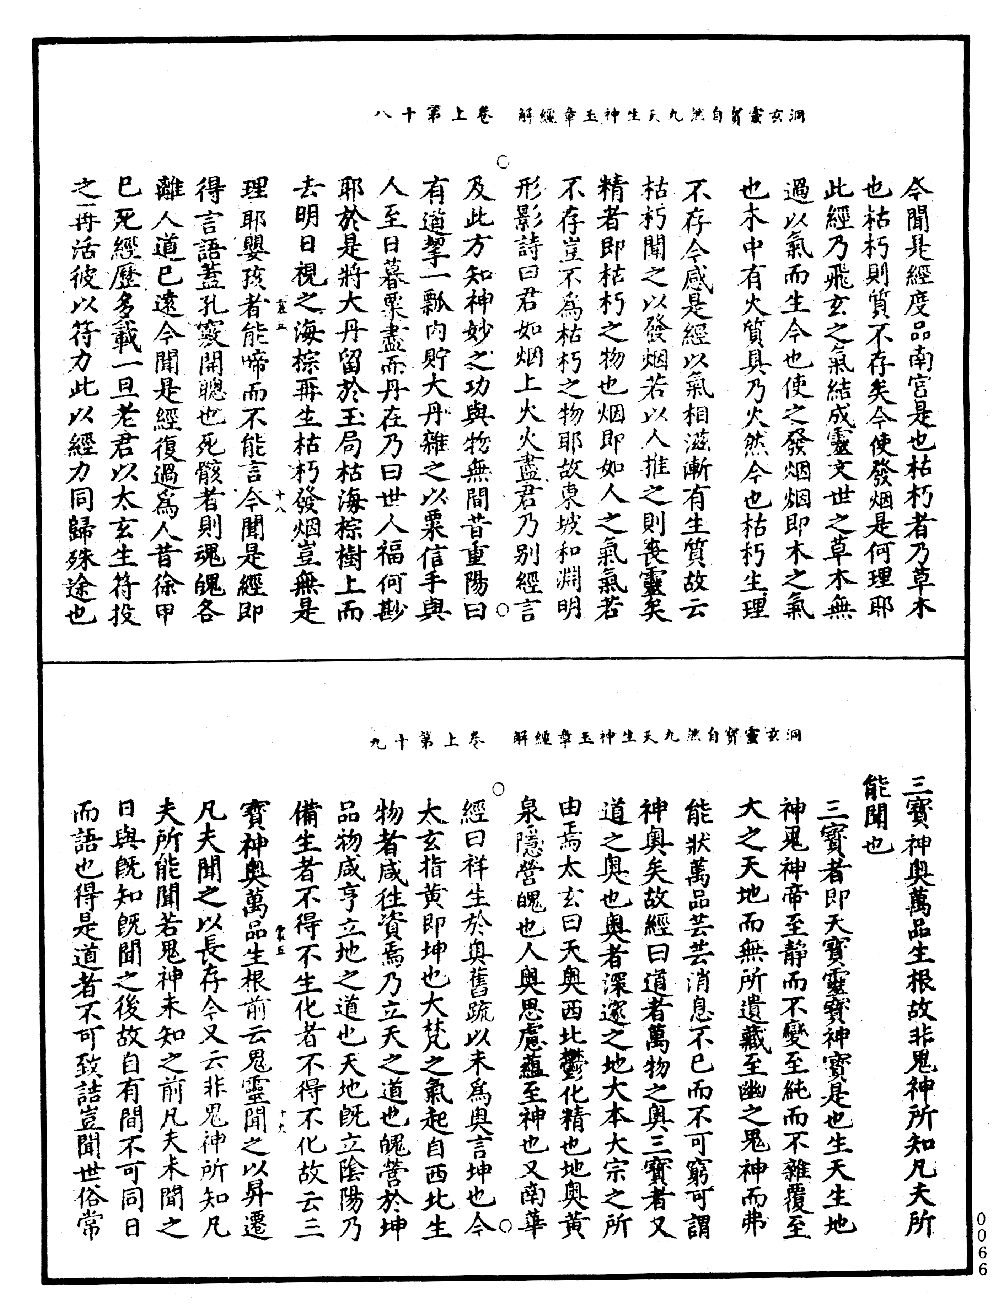 洞玄靈寶自然九天生神玉章經解　卷上第十八
今聞是經度品南宮是也枯朽者乃草木
也枯朽則質不存矣今使發烟是何理耶
此經乃飛玄之氣結成靈文世之草木無
過以氣而生今也使之發烟烟即木之氣
也木中有火質具乃火然今也枯朽生理
不存今感是經以氣相滋漸有生質故云
枯朽聞之以發烟若以人推之則喪靈矣
精者即枯朽之物也烟即如人之氣氣若
不存豈不為枯朽之物耶故東坡和淵明
形影詩曰君如烟上火火盡君乃別經言
及此方知神妙之功與物無間昔重陽曰
有道挈一瓢內貯大丹雜之以粟信手與
人至日暮粟盡而丹在乃曰世人福何尠
耶於是將大丹留於玉局枯海棕樹上而
去明日視之海棕再生枯朽發烟豈無是
理耶嬰孩者能啼而不能言今聞是經即
得言語蓋孔竅開聰也死骸者則魂魄各
離人道已遠今聞是經復過為人昔徐甲
已死經歷多載一旦老君以太玄生符投
之一再活彼以符力此以經力同歸殊途也
洞玄靈寶自然九天生神玉章經解　卷上第十九
三寶神奧萬品生根故非鬼神所知凡夫所
能聞也
三寶者即天寶靈寶神寶是也生天生地
神鬼神帝至静而不變至純而不雜覆至
大之天地而無所遺藏至幽之鬼神而弗
能狀萬品芸芸消息不已而不可窮可謂
神奧矣故經曰道者萬物之奧三寶者又
道之奧也奧者深邃之地大本大宗之所
由焉太玄曰天奧西北鬱化精也地奧黃
泉隱營魄也人奧思慮蘊至神也又南華
經曰祥生於奧舊疏以未為奧言坤也今
太玄指黃即坤也大梵之氣起自西北生
物者咸往資焉乃立天之道也魄營於坤
品物咸亨立地之道也天地既立陰陽乃
備生者不得不生化者不得不化故云三
寶神奧萬品生根前云鬼靈聞之以昇遷
凡夫聞之以長存今又云非鬼神所知凡
夫所能聞若鬼神未知之前凡夫未聞之
日與既知既聞之後故自有間不可同日
而語也得是道者不可致詰豈聞世俗常
0066